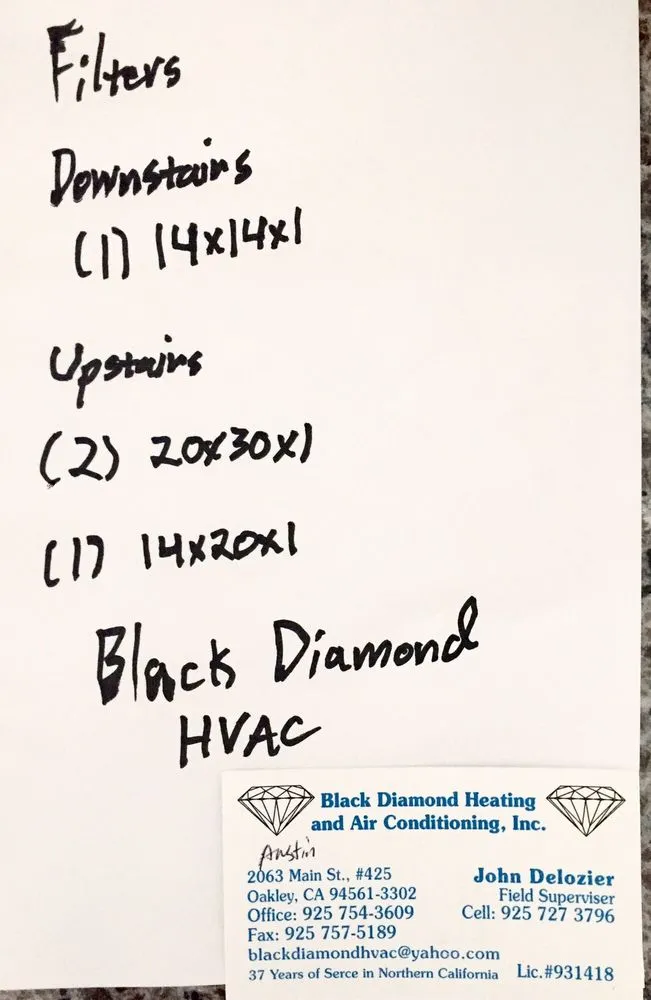 Filters
Downstairs
(1) 14x14x1
Upstairs
(2) 20x30x1
(1) 14x20x1
Black Diamond
HVAC
Black Diamond Heating
and Air Conditioning, Inc.
Austin
2063 Main St., #425
Oakley, CA 94561-3302
Office: 925 754-3609
Fax: 925 757-5189
John Delozier
Field Superviser
Cell: 925 727 3796
blackdiamondhvac@yahoo.com
37 Years of Serce in Northern California Lic.#931418